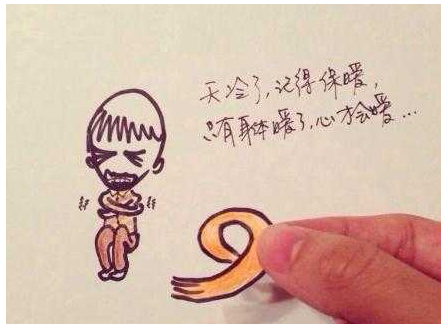 天冷了,记得保暖,
只有身体暖了,心才会暖...